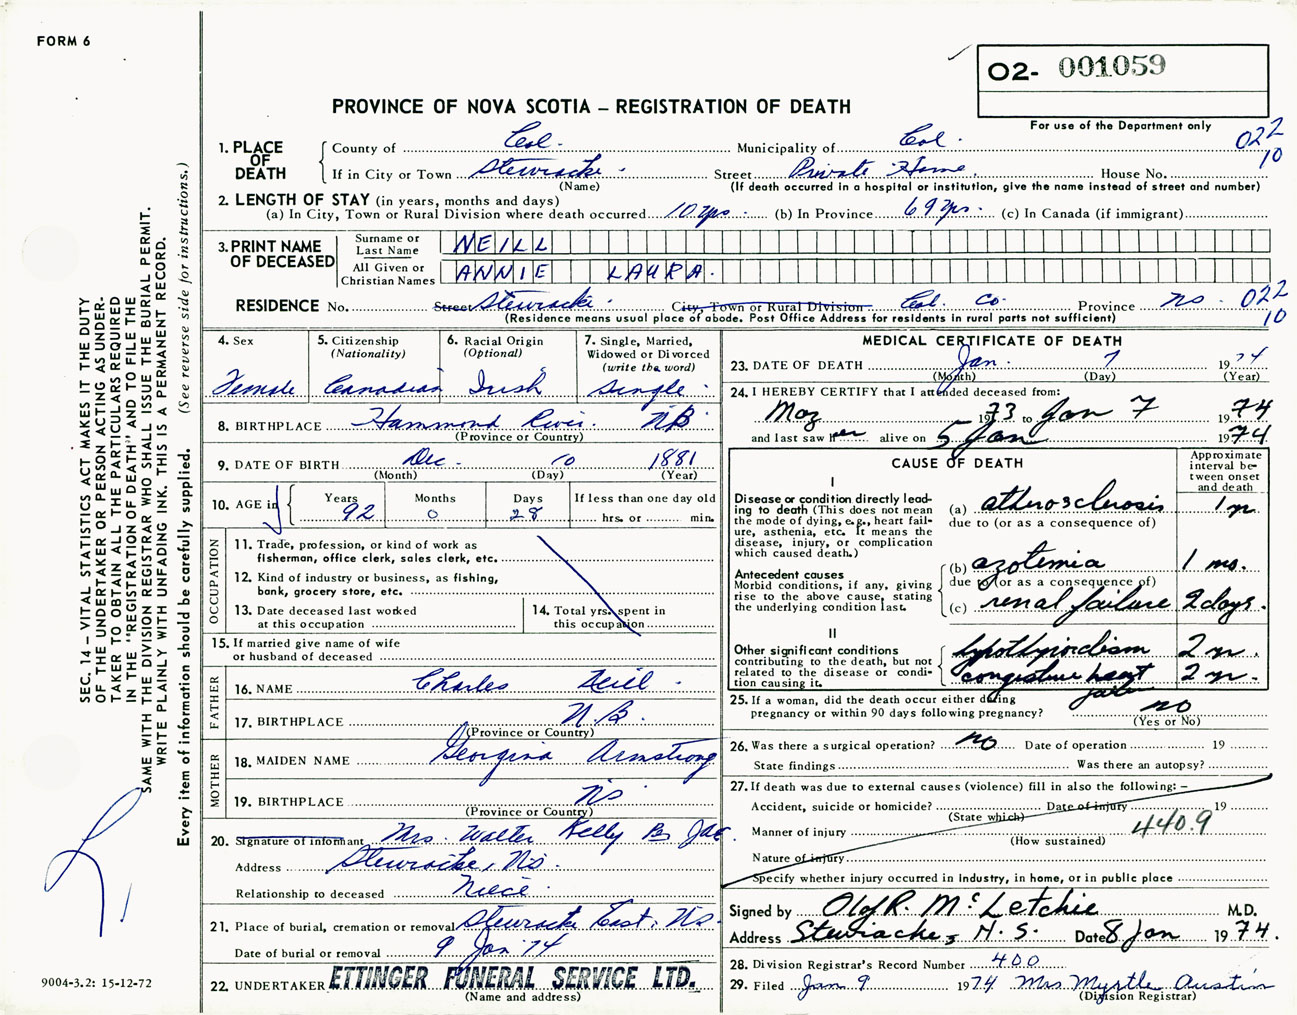 FORM 6
O2- 001059
PROVINCE OF NOVA SCOTIA – REGISTRATION OF DEATH
For use of the Department only
022
10
1. PLACE OF DEATH
County of Col. Municipality of Col.
If in City or Town Stewiacke. Street Private Home. House No.
(Name) (If death occurred in a hospital or institution, give the name instead of street and number)
2. LENGTH OF STAY (in years, months and days)
(a) In City, Town or Rural Division where death occurred 10 yrs. (b) In Province 69 yrs. (c) In Canada (if immigrant)
3. PRINT NAME OF DECEASED
Surname or Last Name NEILL
All Given or Christian Names ANNIE LAURA.
RESIDENCE No. Street Stewiacke. City, Town or Rural Division Col. Co. Province NS. 022
(Residence means usual place of abode. Post Office Address for residents in rural parts not sufficient) 10
4. Sex
Female
5. Citizenship
(Nationality)
Canadian
6. Racial Origin
(Optional)
Irish
7. Single, Married,
Widowed or Divorced
(write the word)
Single.
8. BIRTHPLACE Hammond River. NB.
(Province or Country)
9. DATE OF BIRTH Dec. 10 1881
(Month) (Day) (Year)
10. AGE in
Years 92
Months 0
Days 28
If less than one day old
hrs. or min.
OCCUPATION
11. Trade, profession, or kind of work as
fisherman, office clerk, sales clerk, etc.
12. Kind of industry or business, as fishing,
bank, grocery store, etc.
13. Date deceased last worked
at this occupation
14. Total yrs. spent in
this occupation
15. If married give name of wife
or husband of deceased
FATHER
16. NAME Charles Neill.
17. BIRTHPLACE N.B.
(Province or Country)
MOTHER
18. MAIDEN NAME Georgina Armstrong
19. BIRTHPLACE NS
(Province or Country)
20. Signature of informant Mrs. Walter Kelly
Address Stewiacke, NS.
Relationship to deceased Niece.
21. Place of burial, cremation or removal Stewiacke East. NS.
Date of burial or removal 9 Jan '74
22. UNDERTAKER ETTINGER FUNERAL SERVICE LTD.
(Name and address)
MEDICAL CERTIFICATE OF DEATH
23. DATE OF DEATH Jan. 7 1974
(Month) (Day) (Year)
24. I HEREBY CERTIFY that I attended deceased from:
May 1973 to Jan 7 1974
and last saw her alive on 5 Jan 1974
CAUSE OF DEATH
Approximate interval between onset and death
I
Disease or condition directly leading to death (This does not
the mode of dying, e.g., heart failure, asthenia, etc. It means the
disease, injury, or complication
which caused death.)
(a) atherosclerosis 1 yr
due to (or as a consequence of)
Antecedent causes
Morbid conditions, if any, giving
rise to the above cause, stating
the underlying condition last.
(b) azotemia 1 mo.
due to (or as a consequence of)
(c) renal failure 2 days.
II
Other significant conditions
contributing to the death, but not
related to the disease or condition causing it.
hypothyroidism 2 yr.
congestive heart failure 2 yr.
25. If a woman, did the death occur either during
pregnancy or within 90 days following pregnancy? no
(Yes or No)
26. Was there a surgical operation? no Date of operation 19
State findings Was there an autopsy?
27. If death was due to external causes (violence) fill in also the following: –
Accident, suicide or homicide? Date of injury 19
(State which)
Manner of injury 440.9
(How sustained)
Nature of injury
Specify whether injury occurred in Industry, in home, or in public place
Signed by Olof R. McLetchie M.D.
Address Stewiacke, N.S. Date 8 Jan 1974.
28. Division Registrar's Record Number 400
29. Filed Jan 9 1974 Mrs Myrtle Austin
(Division Registrar)
SEC. 14 – VITAL STATISTICS ACT MAKES IT THE DUTY
OF THE UNDERTAKER OR PERSON ACTING AS UNDERTAKER TO OBTAIN ALL THE PARTICULARS REQUIRED
IN THE "REGISTRATION OF DEATH" AND TO FILE THE
SAME WITH THE DIVISION REGISTRAR WHO SHALL ISSUE THE BURIAL PERMIT.
WRITE PLAINLY WITH UNFADING INK. THIS IS A PERMANENT RECORD.
Every item of information should be carefully supplied. (See reverse side for instructions.)
9004-3.2: 15-12-72